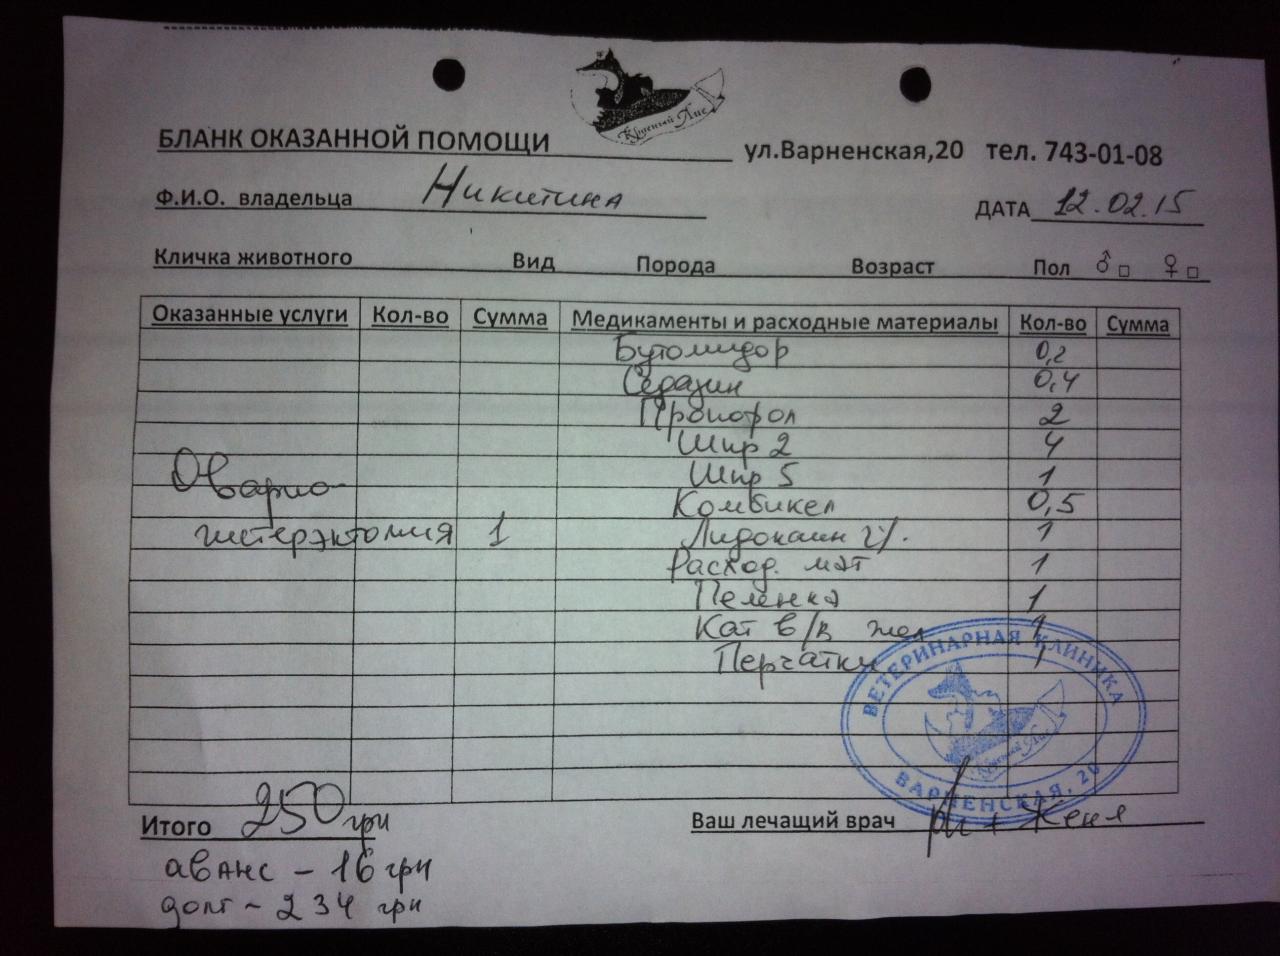 Красный Лис
БЛАНК ОКАЗАННОЙ ПОМОЩИ ул.Варненская,20 тел. 743-01-08
Ф.И.О. владельца Никитина ДАТА 12.02.15
Кличка животного Вид Порода Возраст Пол ♂ □ ♀ □
Оказанные услуги Кол-во Сумма Медикаменты и расходные материалы Кол-во Сумма
Бутомидор 0,2
Седазин 0,4
Пропофол 2
Шпр 2 4
Шпр 5 1
Оварио- Комбикел 0,5
гистерэктомия 1 Лидокаин 2%. 1
Расход. мат 1
Пеленка 1
Кат в/в жел 1
Перчатки 1
ВЕТЕРИНАРНАЯ КЛИНИКА
Красный Лис
ВАРНЕНСКАЯ, 20
Итого 250 грн Ваш лечащий врач + Женя
аванс - 16 грн
долг - 234 грн